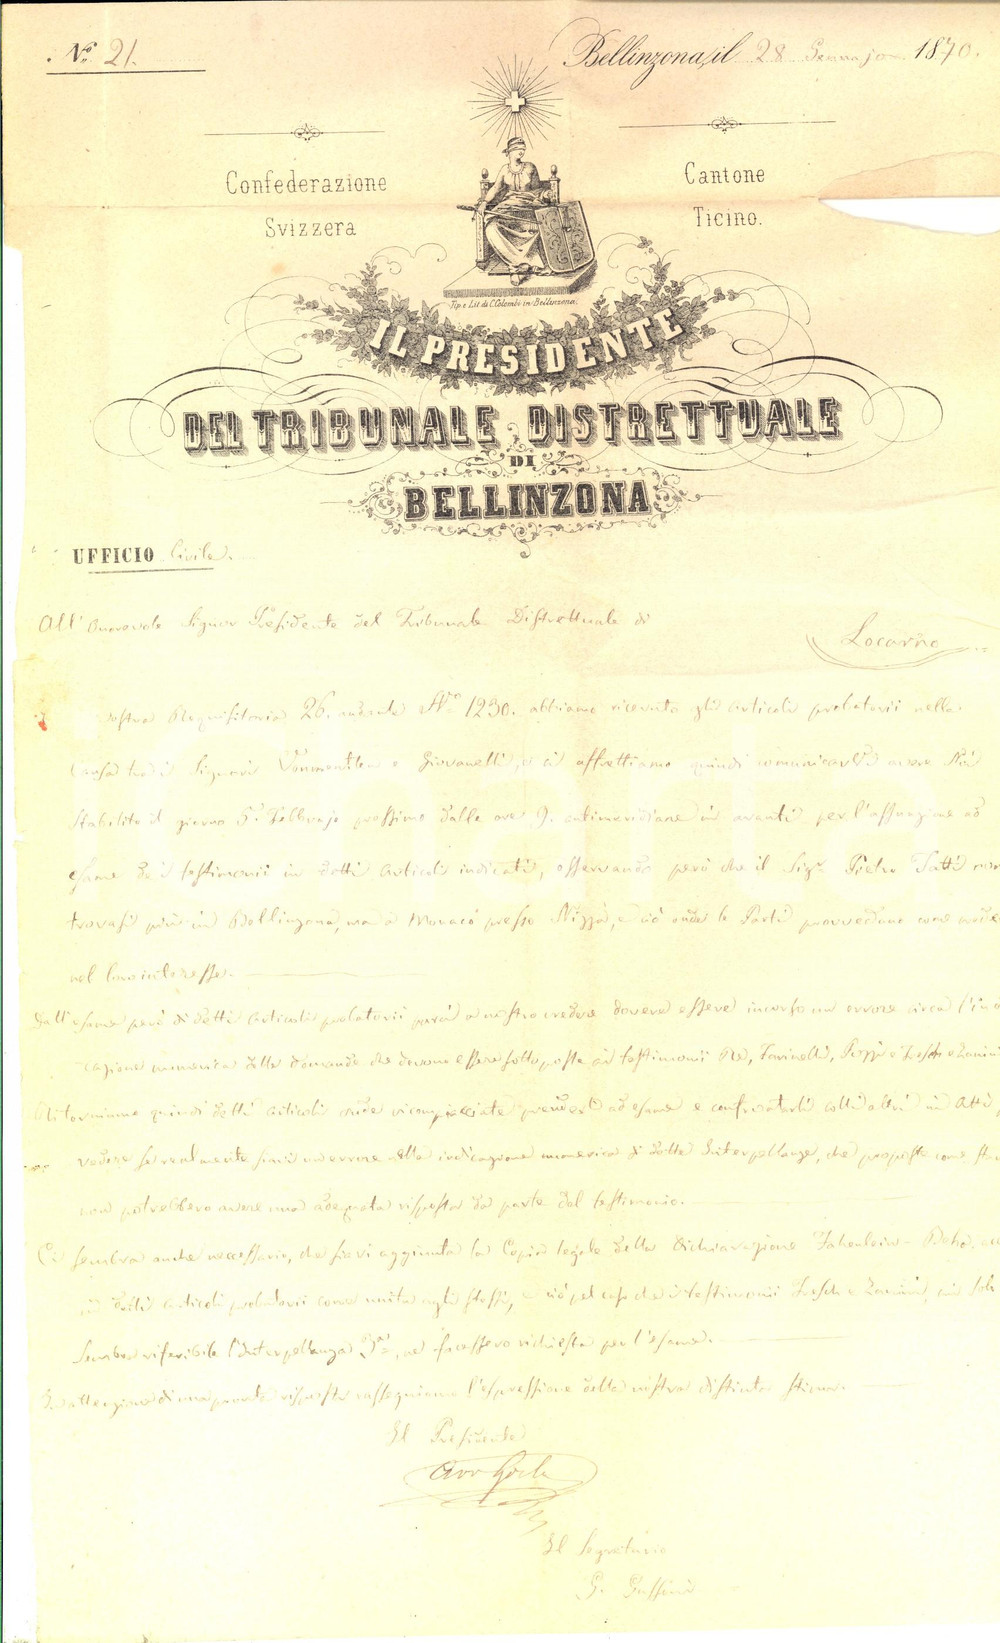 N.º 21.
Bellinzona, il 28 Gennajo 1870.
Confederazione
Svizzera
Cantone
Ticino.
Tip. e Lit. di C. Colombi in Bellinzona.
IL PRESIDENTE
DEL TRIBUNALE DISTRETTUALE
DI
BELLINZONA
UFFICIO Civile.
All' Onorevole Signor Presidente del Tribunale Distrettuale di
Locarno
vostra Requisitoria 26. andante Nº 1230. abbiamo ricevuto gli articoli probatorii nella
Causa tra i Signori e Giovanelli, e ci affrettiamo quindi comunicarvi avere noi
stabilito il giorno 5. Febbrajo prossimo dalle ore 9. antimeridiane in avanti per l'assunzione ad
esame dei testimonii in detti articoli indicati, osservando però che il Sigr Pietro Fatti non
trovasi più in Bellinzona, ma a Monaco presso Nizza, e ciò onde le Parti provvedano come
nel loro interesse.
Dall'esame però di detti articoli probatorii parci a nostro credere dovere essere incorso un errore circa l'indi
cazione numerica delle domande che devono essere sottoposte ai testimonii Re, Farinelli, Pozzi e Zanini
Ritorniamo quindi detti articoli onde vi compiacciate prenderli ad esame e confrontarli colli altri in Atti
vedere se realmente siavi un errore nella indicazione numerica di dette Interpellanze, che proposte come
non potrebbero avere una adeguata risposta da parte del testimonio.
Ci sembra anche necessario, che sievi aggiunta la Copia legale della dichiarazione
in detti articoli probatorii come unita agli stessi, e ciò pel caso che i testimonii e Zanini,
sembra riferibile l'Interpellanza 3ª, ne facessero richiesta per l'esame.
In attenzione di una pronta risposta rassegniamo l'espressione della nostra distinta stima.
Il Presidente
Avv
Il Segretario
G.